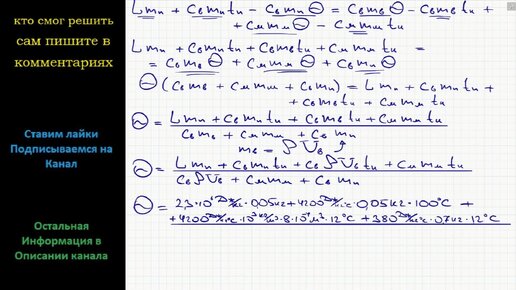 кто смог решить
сам пишите в
комментариях
Ставим лайки
Подписываемся на
Канал
Остальная
Информация в
Описании канала
Lmп + Cвmпtп - Cвmпθ = Cвmвθ - Cвmвtн +
+ Cмmмθ - Cмmмtн
Lmп + Cвmпtп + Cвmвtн + Cмmмtн =
= Cвmвθ + Cмmмθ + Cвmпθ
θ(Cвmв + Cмmм + Cвmп) = Lmп + Cвmпtп +
+ Cвmвtн + Cмmмtн
θ = Lmп + Cвmпtп + Cвmвtн + Cмmмtн
Cвmв + Cмmм + Cвmп
mв = ρVв
θ = Lmп + Cвmпtп + CвρVвtн + Cмmмtн
CвρVв + Cмmм + Cвmп
θ = 2,3·10⁶ Дж/кг · 0,05кг + 4200 Дж/кг°C · 0,05кг · 100°C +
+ 4200 Дж/кг°C · 10³ кг/м³ · 8·10⁻⁴м³ · 12°C + 380 Дж/кг°C · 0,7кг · 12°C